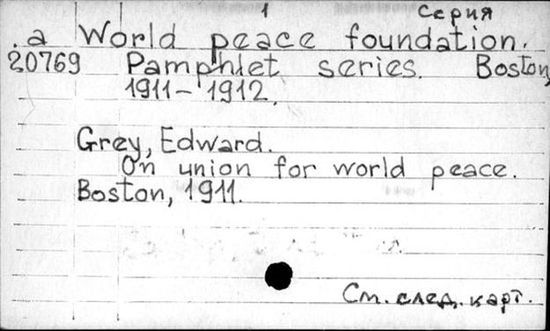 1 Серия
.a World peace foundation.
20769 Pamphlet series. Boston,
1911-1912.
Grey, Edward.
On union for world peace.
Boston, 1911.
См. след. карт.